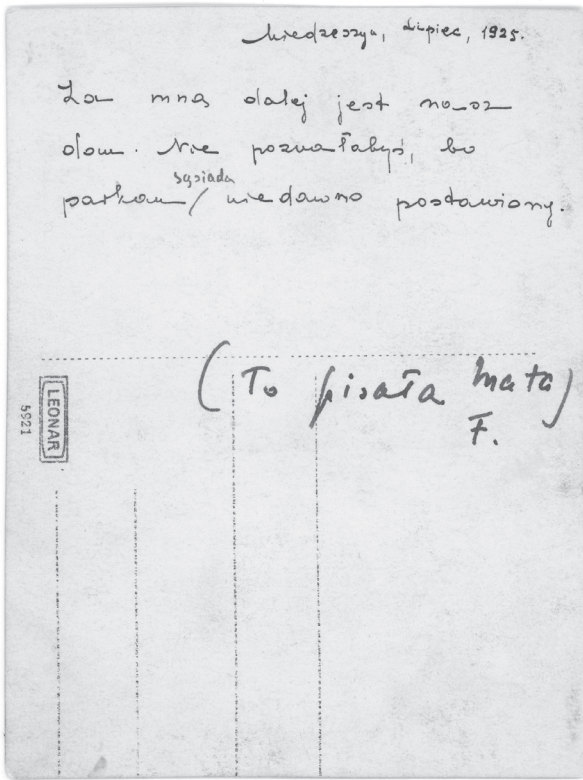 Miedzeszyn, Lipiec, 1925.
Za mną dalej jest nasz
dom. Nie poznałabyś, bo
sąsiada
parkan / niedawno postawiony.
(To pisała Mata)
F.
LEONAR
5921